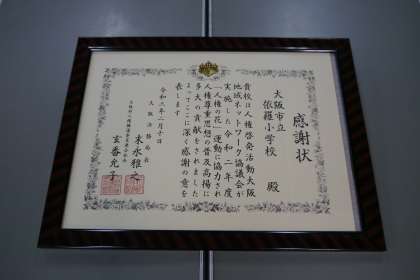 感謝状
大阪市立
依羅小学校 殿
貴校は人権啓発活動大阪
地域ネットワーク協議会が
実施した令和二年度
「人権の花」運動に協力され
人権尊重思想の普及高揚に
多大の貢献をされました
よってここに深く感謝の意を
表します
令和三年二月十日
大阪法務局長
末永雅之
玄番允子